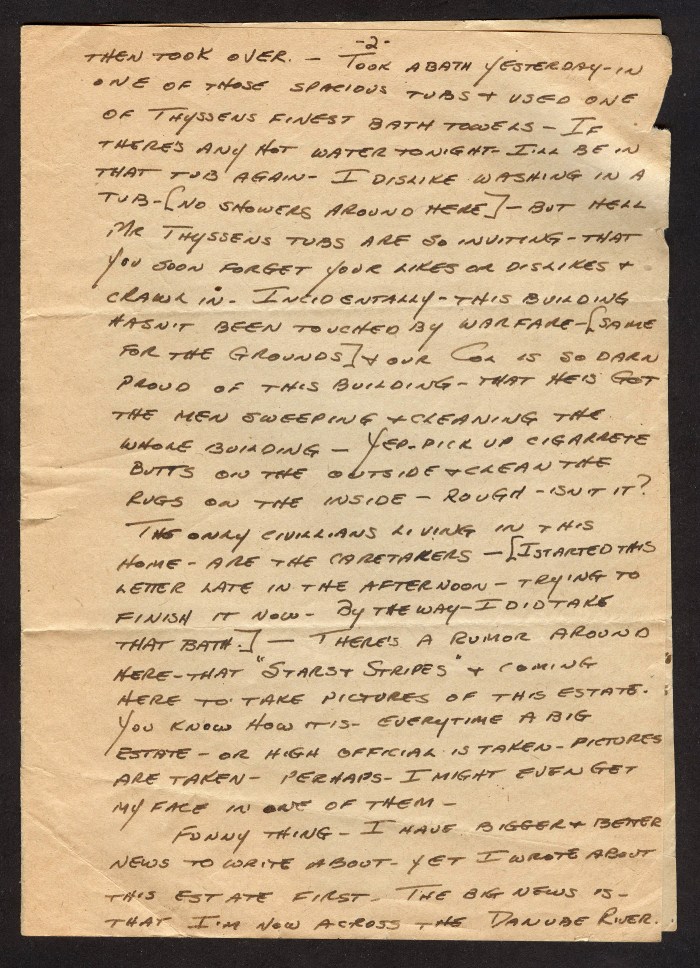 -2-
THEN TOOK OVER. - TOOK A BATH YESTERDAY-IN
ONE OF THOSE SPACIOUS TUBS + USED ONE
OF THYSSENS FINEST BATH TOWELS - IF
THERE'S ANY HOT WATER TONIGHT- I'LL BE IN
THAT TUB AGAIN- I DISLIKE WASHING IN A
TUB-[NO SHOWERS AROUND HERE]- BUT HELL
MR THYSSENS TUBS ARE SO INVITING-THAT
YOU SOON FORGET YOUR LIKES OR DISLIKES +
CRAWL IN- INCIDENTALLY-THIS BUILDING
HASN'T BEEN TOUCHED BY WARFARE-[SAME
FOR THE GROUNDS] + OUR COL IS SO DARN
PROUD OF THIS BUILDING- THAT HE'S GOT
THE MEN SWEEPING + CLEANING THE
WHOLE BUILDING - YEP-PICK UP CIGARRETE
BUTTS ON THE OUTSIDE + CLEAN THE
RUGS ON THE INSIDE - ROUGH - ISN'T IT?
THE ONLY CIVILIANS LIVING IN THIS
HOME- ARE THE CARETAKERS -[I STARTED THIS
LETTER LATE IN THE AFTERNOON- TRYING TO
FINISH IT NOW- BY THE WAY-I DID TAKE
THAT BATH.] - THERE'S A RUMOR AROUND
HERE-THAT "STARS + STRIPES" + COMING
HERE TO TAKE PICTURES OF THIS ESTATE.
YOU KNOW HOW IT IS- EVERYTIME A BIG
ESTATE- OR HIGH OFFICIAL IS TAKEN- PICTURES
ARE TAKEN- PERHAPS- I MIGHT EVEN GET
MY FACE IN ONE OF THEM-
FUNNY THING- I HAVE BIGGER + BETTER
NEWS TO WRITE ABOUT- YET I WROTE ABOUT
THIS ESTATE FIRST- THE BIG NEWS IS-
THAT I'M NOW ACROSS THE DANUBE RIVER.